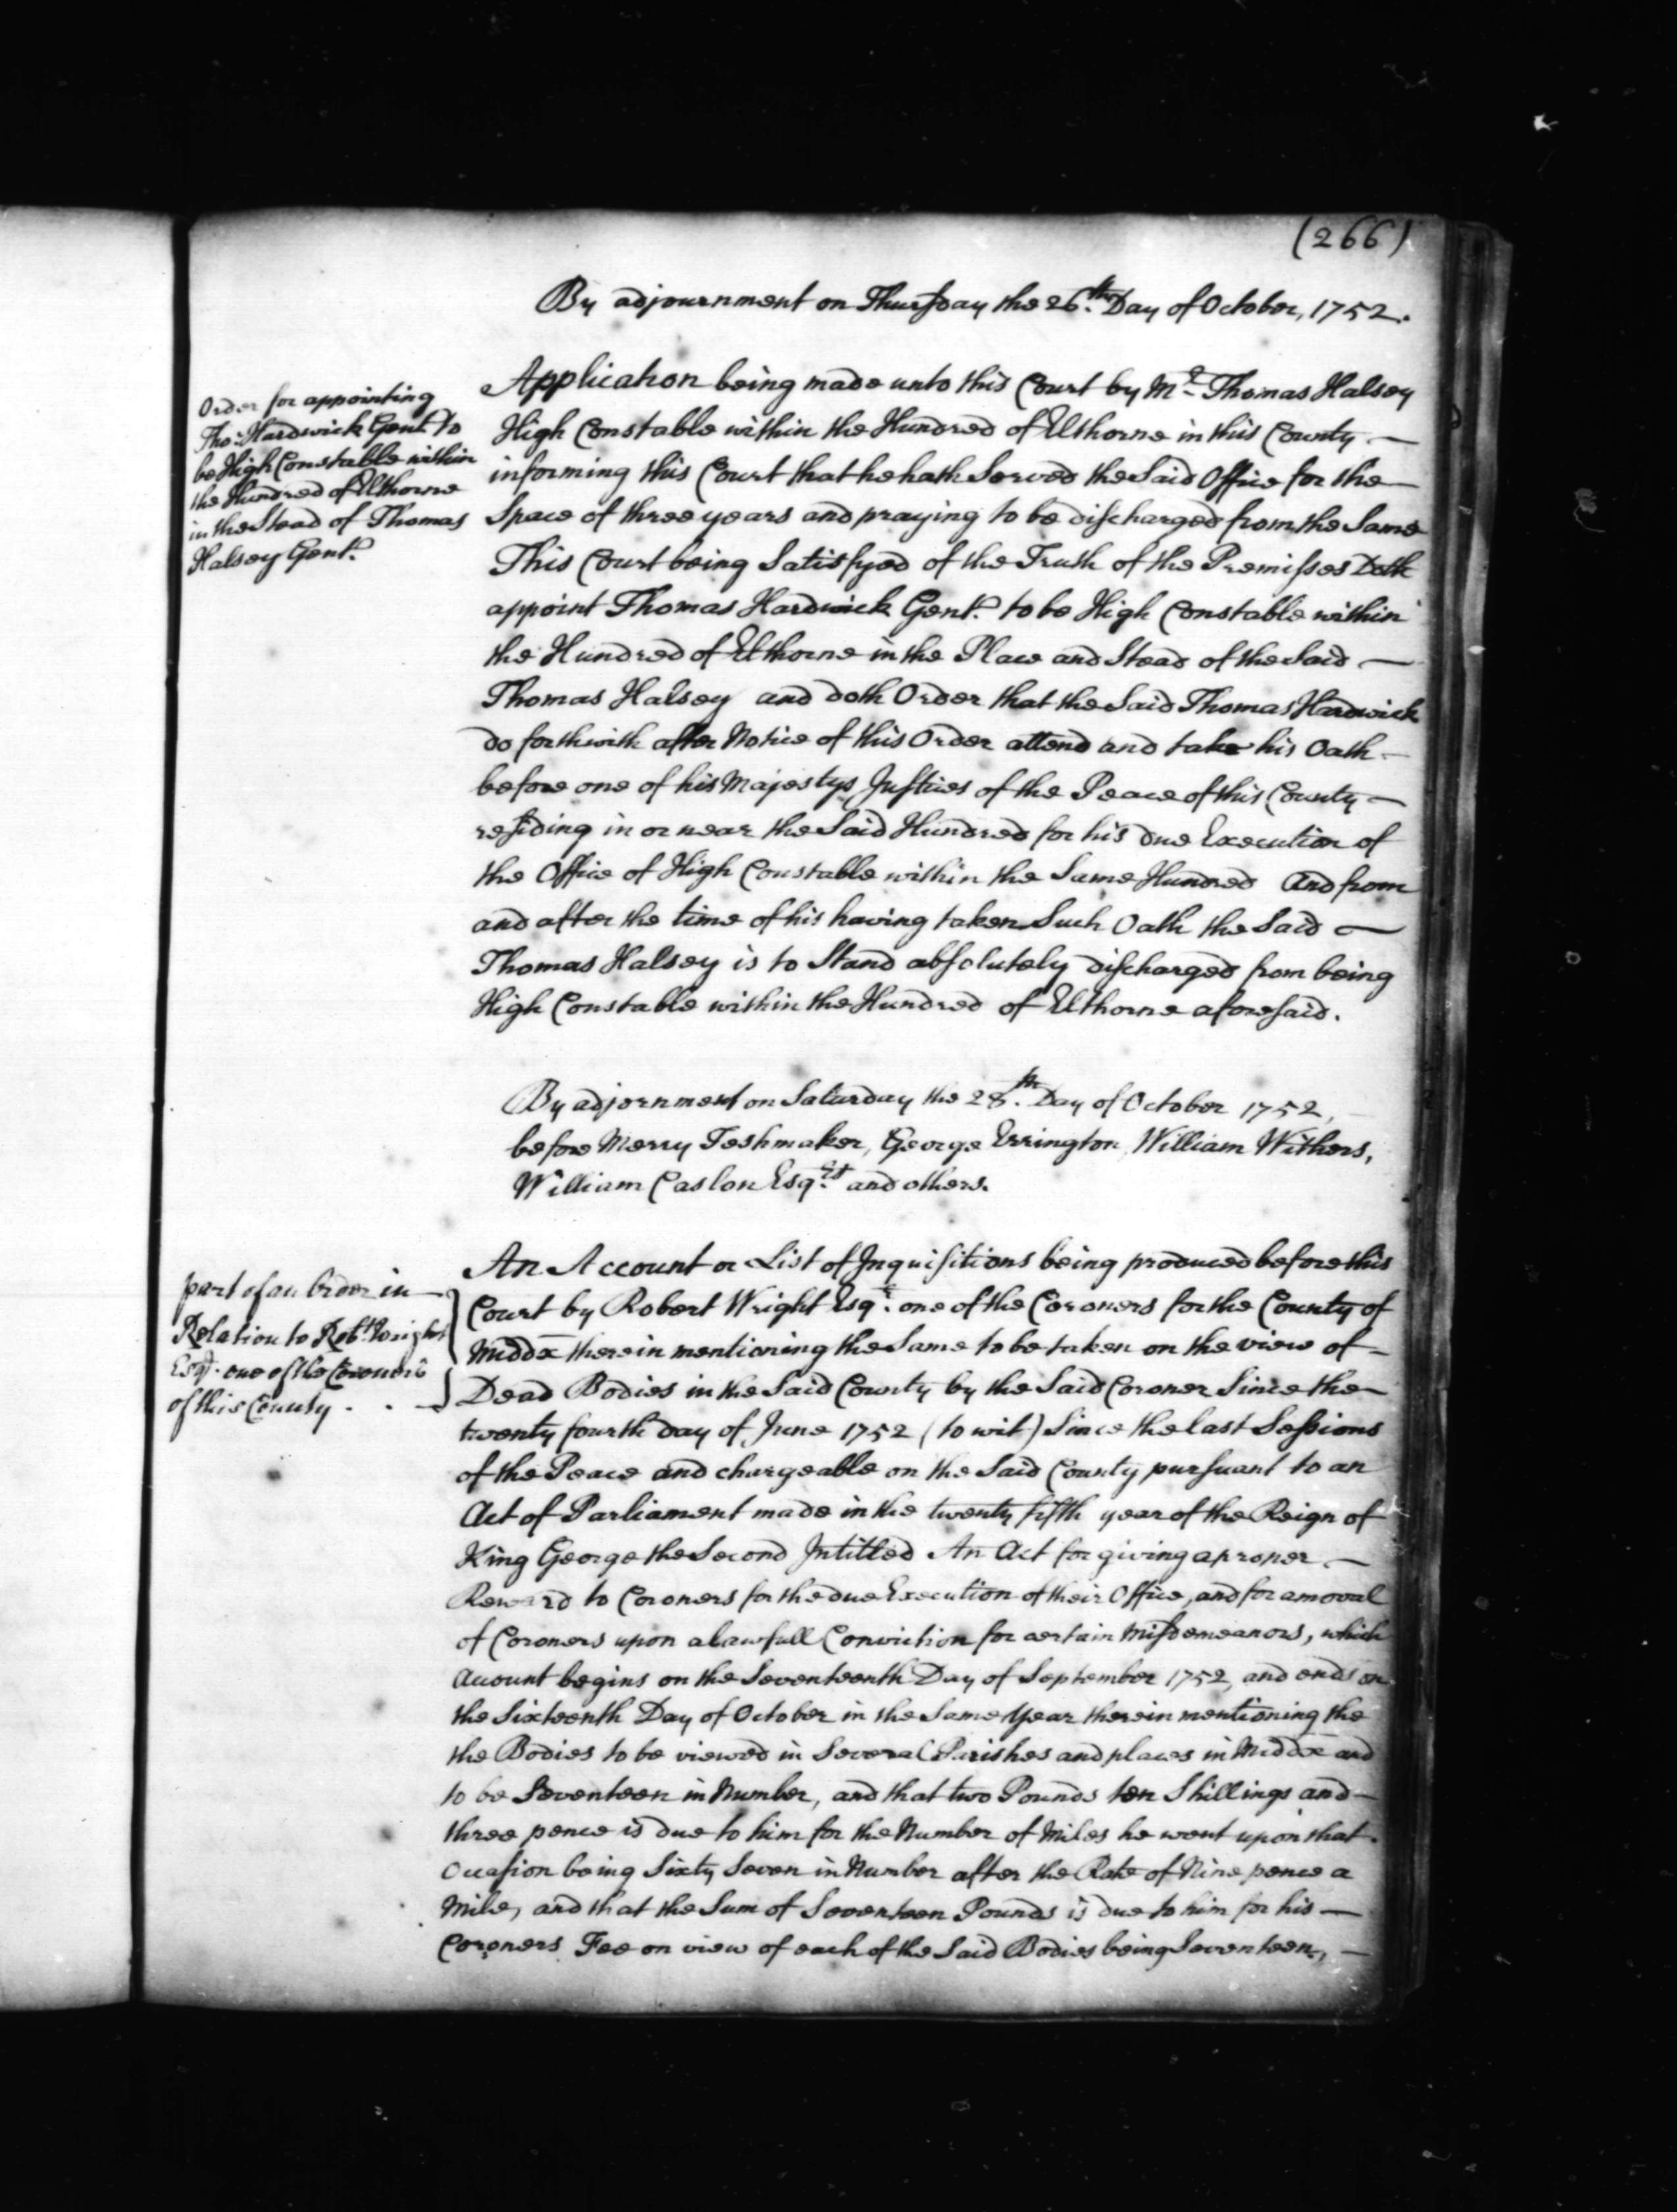 (266)
By adjournment on Thursday the 26.th Day of October, 1752.
Order for appointing
Tho.s Hardwick Gent. to
be High Constable within
the Hundred of Elthorne
in the Stead of Thomas
Halsey Gent.
Application being made unto this Court by Mr. Thomas Halsey
High Constable within the Hundred of Elthorne in this County —
informing this Court that he hath Served the Said Office for the —
Space of three years and praying to be discharged from the Same
This Court being Satisfyed of the Truth of the Premisses Doth
appoint Thomas Hardwick Gent. to be High Constable within
the Hundred of Elthorne in the Place and Stead of the Said —
Thomas Halsey and doth Order that the Said Thomas Hardwick
do forthwith after Notice of this Order attend and take his Oath —
before one of his Majestys Justices of the Peace of this County —
residing in or near the Said Hundred for his due Execution of
the Office of High Constable within the Same Hundred And from
and after the time of his having taken Such Oath the Said —
Thomas Halsey is to Stand absolutely discharged from being
High Constable within the Hundred of Elthorne aforesaid.
By adjornment on Saturday the 28.th Day of October 1752,
before Merry Teshmaker, George Errington, William Withers,
William Caslon Esq.rs and others.
part of an Order in —
Relation to Rob.t Wright
Esq.r one of the Coroners
of this County . . —
An Account or List of Inquisitions being produced before this
Court by Robert Wright Esq.r one of the Coroners for the County of
Middx therein mentioning the Same to be taken on the view of —
Dead Bodies in the Said County by the Said Coroner Since the —
twenty fourth day of June 1752 (to wit) Since the last Sessions
of the Peace and chargeable on the Said County pursuant to an
Act of Parliament made in the twenty fifth year of the Reign of
King George the Second Intitled An Act for giving a proper —
Reward to Coroners for the due Execution of their Office, and for amoval
of Coroners upon a lawfull Conviction for certain Misdemeanors, which
Account begins on the Seventeenth Day of September 1752, and ends on
the Sixteenth Day of October in the Same Year therein mentioning the
the Bodies to be viewed in Several Parishes and places in Middx and
to be Seventeen in Number, and that two Pounds ten Shillings and —
three pence is due to him for the Number of Miles he went upon that
Occasion being Sixty Seven in Number after the Rate of Nine pence a
Mile, and that the Sum of Seventeen Pounds is due to him for his —
Coroners Fee on view of each of the Said Bodies being Seventeen, —